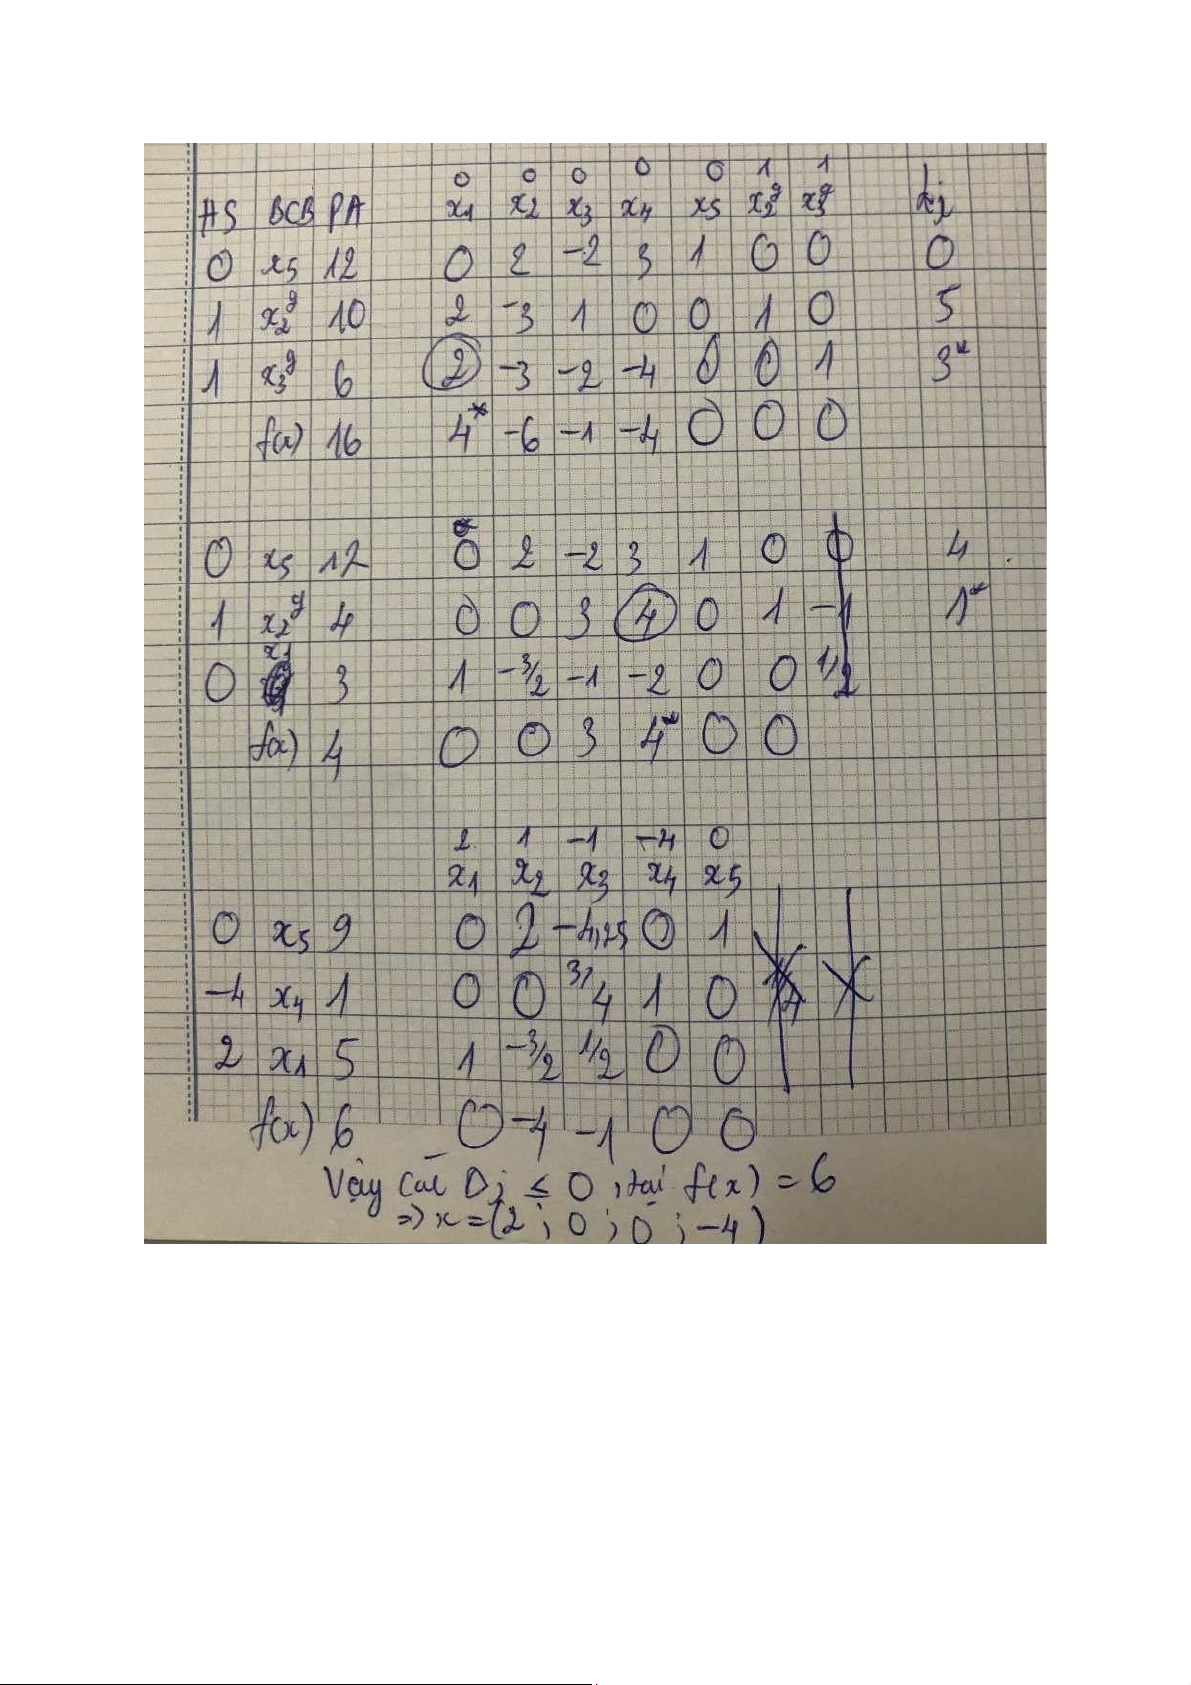 0 0 0 0 0 1 1
HS BCB PA x1 x2 x3 x4 x5 x2g x3g
0 x5 12 0 2 -2 3 1 0 0 0
1 x2g 10 2 -3 1 0 0 1 0 5
1 x3g 6 2 -3 -2 -4 0 0 1 3*
f(x) 16 4* -6 -1 -4 0 0 0
0 x5 12 0 2 -2 3 1 0 0 4
1 x2g 4 0 0 3 4 0 1 -1 1*
0 x1 3 1 -3/2 -1 -2 0 0 1/2
f(x) 4 0 0 3 4* 0 0
2 1 -1 -4 0
x1 x2 x3 x4 x5
0 x5 9 0 2 -4,25 0 1
-4 x4 1 0 0 3/4 1 0
2 x1 5 1 -3/2 1/2 0 0
f(x) 6 0 -4 -1 0 0
Vậy các Dj ≤ 0, tại f(x) = 6
=> x = (2; 0; 0; -4)